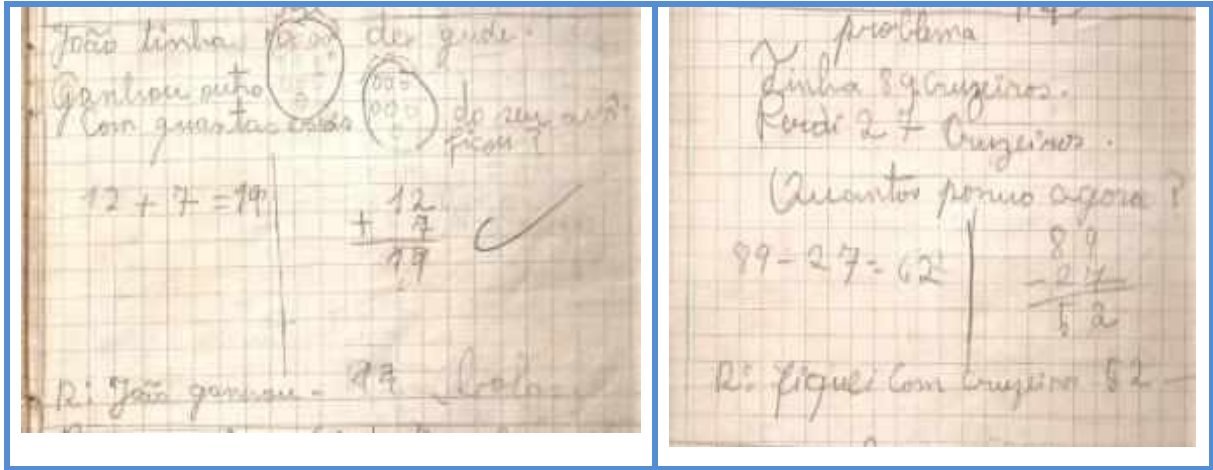 João tinha de gude.
Ganhou outro do seu avô.
Com quantas ficou?
12 + 7 = 19
12
+ 7
19
R: João ganhou -
problema
Tinha 89 Cruzeiros.
Perdi 27 Cruzeiros.
Quantos possuo agora?
89 - 27 = 62
89
- 27
2
R: fiquei com cruzeiros